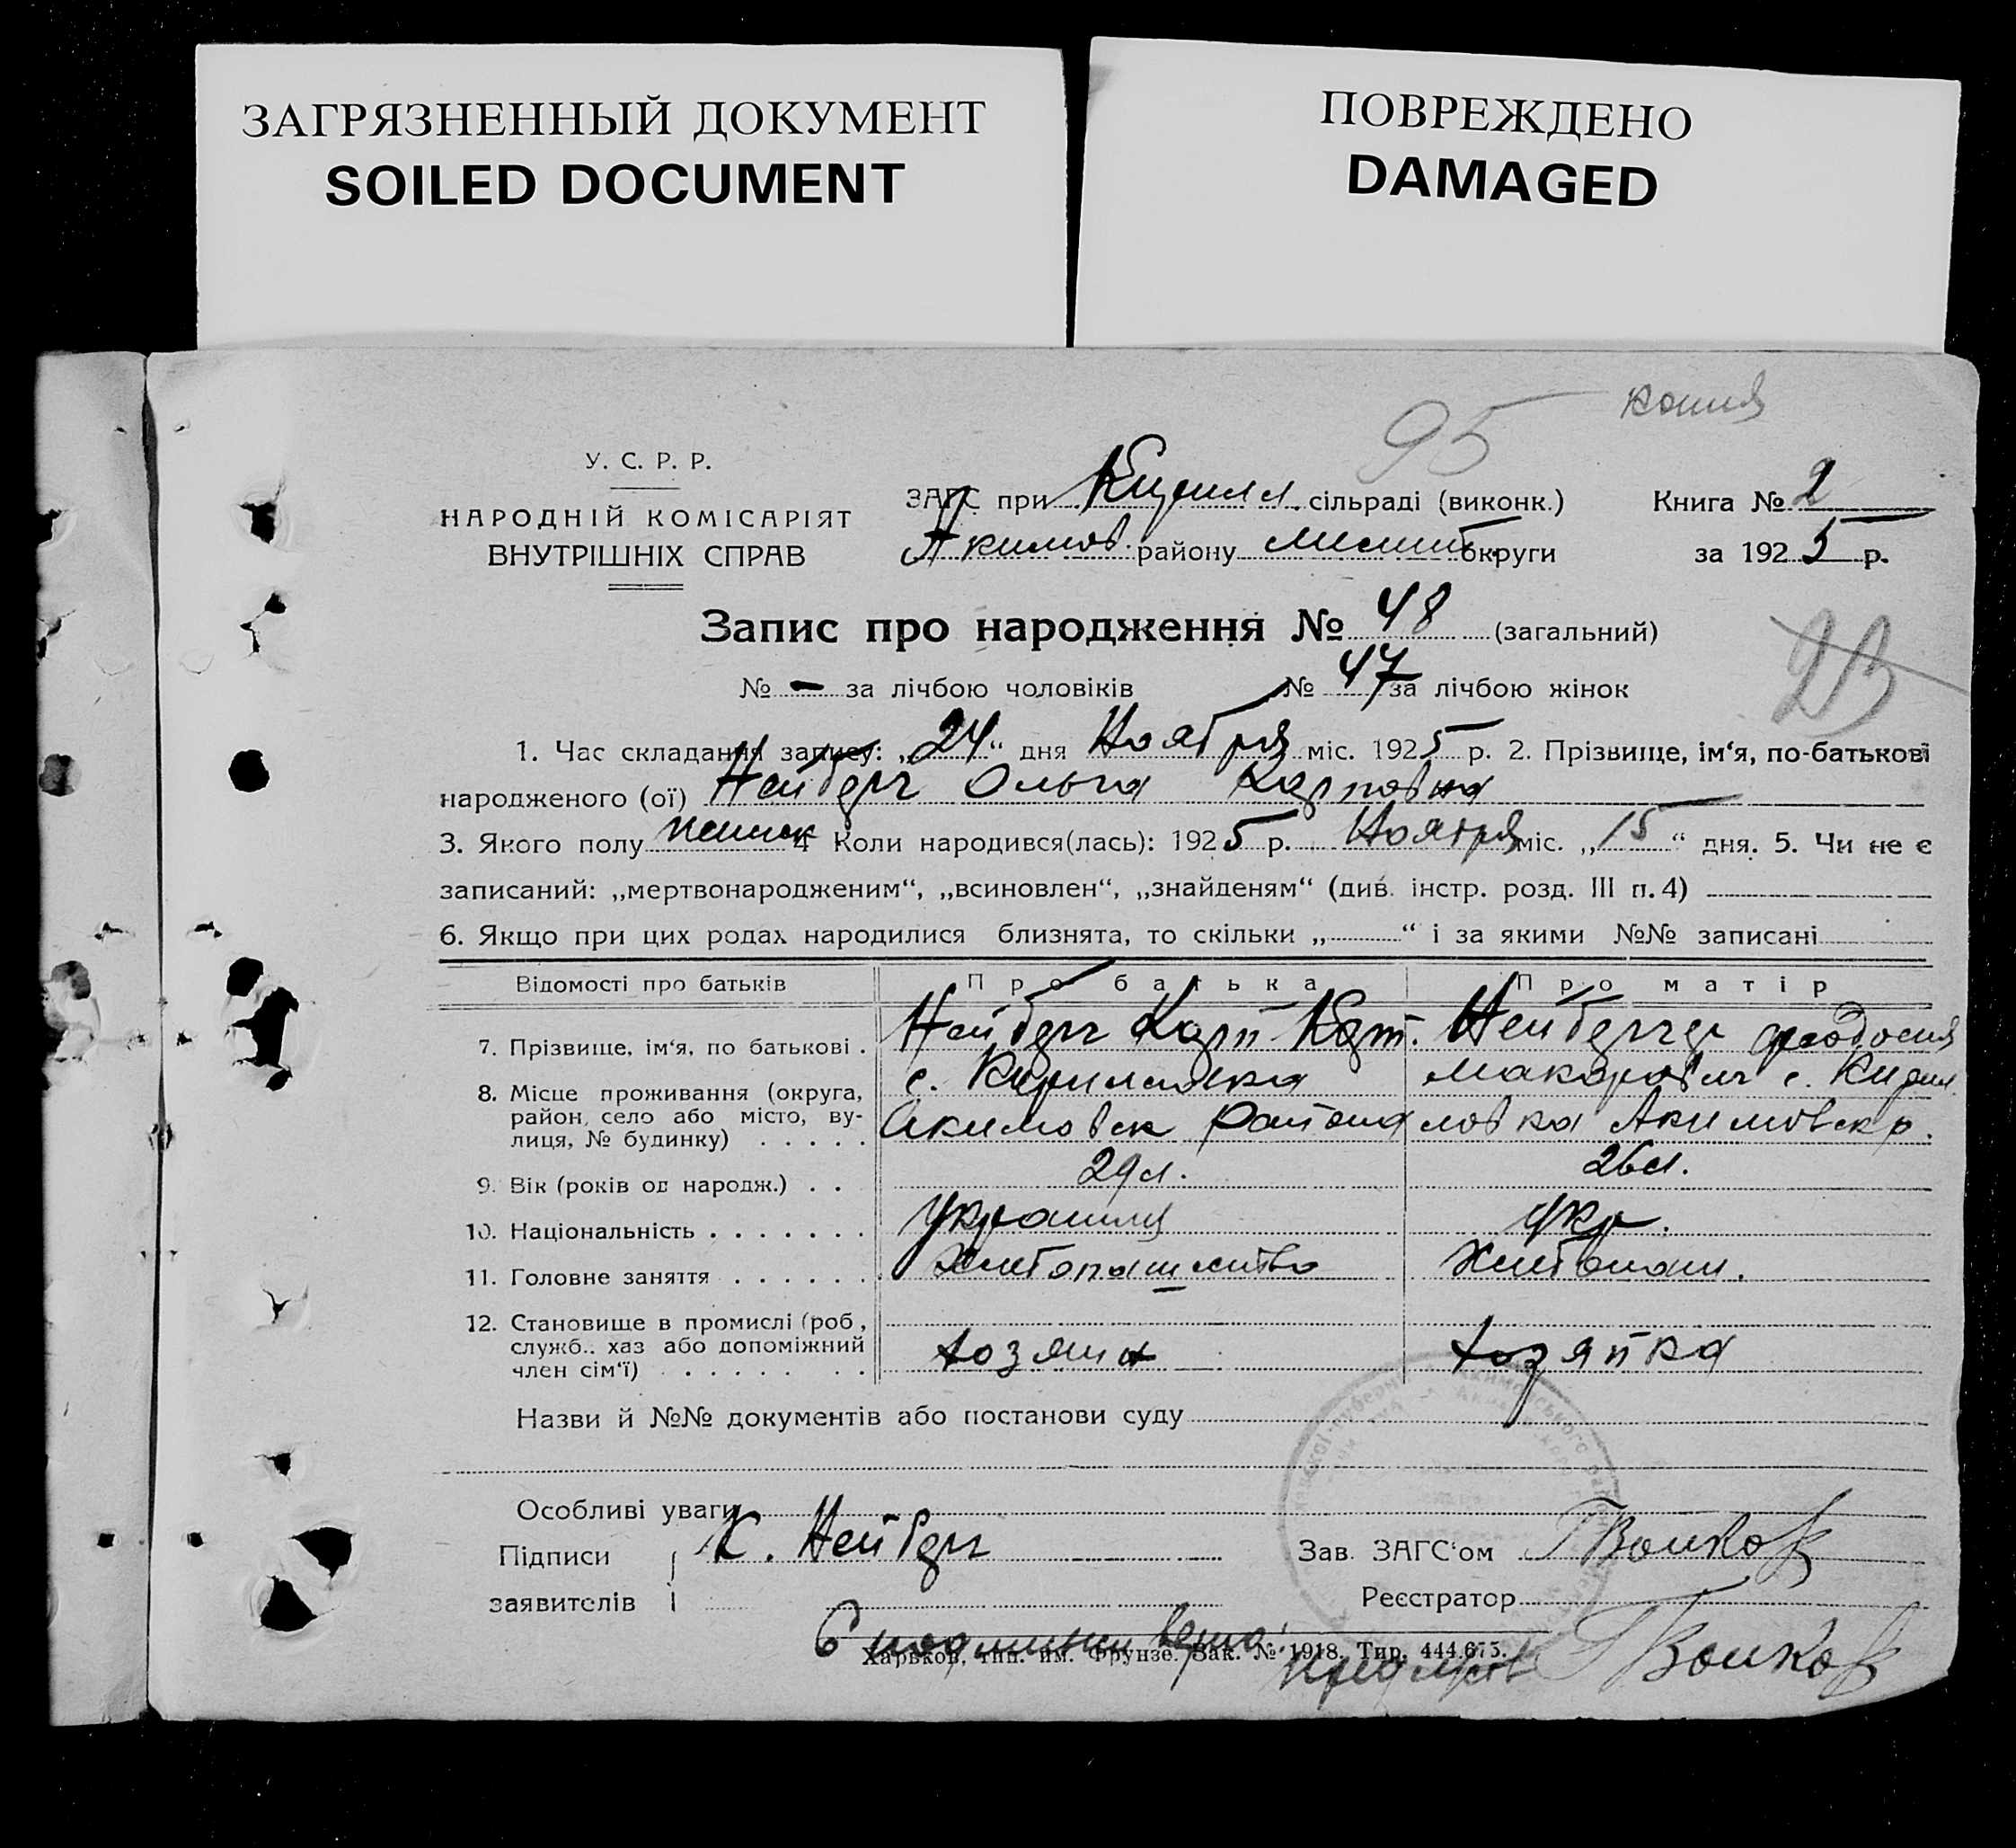 ЗАГРЯЗНЕННЫЙ ДОКУМЕНТ
SOILED DOCUMENT
ПОВРЕЖДЕНО
DAMAGED
копия
95
У. С. Р. Р.
НАРОДНІЙ КОМІСАРІЯТ
ВНУТРІШНІХ СПРАВ
ЗАГС при Кирилл. сільраді (виконк.)
Акимов. району Мелит. округи
Книга № 2
за 1925 р.
Запис про народження № 48 (загальний)
23
№ - за лічбою чоловіків № 47 за лічбою жінок
1. Час складання запису: „24“ дня Ноября міс. 1925 р. 2. Прізвище, ім‘я, по-батькові
народженого (ої) Нейберг Ольга Карповна
3. Якого полу женск 4 Коли народився(лась): 1925 р. Ноября міс. „15“ дня. 5. Чи не є
записаний: „мертвонародженим“, „всиновлен“, „знайденям“ (див. інстр. розд. III п. 4)
6. Якщо при цих родах народилися близнята, то скільки „ “ і за якими №№ записані
Відомості про батьків Про батька Про матір
7. Прізвище, ім‘я, по батькові . Нейберг Карп Нейберг Феодосия
8. Місце проживання (округа, с. Кирилловка Макаровн с. Кирил
район, село або місто, ву-
лиця, № будинку) . . . . . Акимовск района ловка Акимовск р.
9. Вік (років од народж.) . . 29 л. 26 л.
10. Національність . . . . . . . Украинц укр.
11. Головне заняття . . . . . . Хлебопашество Хлебопаш.
12. Становище в промислі (роб.,
служб., хаз або допоміжний
член сім‘ї) . . . . . . . хозяин хозяйка
Назви й №№ документів або постанови суду
Особливі уваги
Підписи К. Нейберг Зав. ЗАГС‘ом Волков
заявителів Реєстратор
С подлинным верно:
Харьков, тип. им. Фрунзе. Зак. № 1918. Тир. 444.675.
Волков